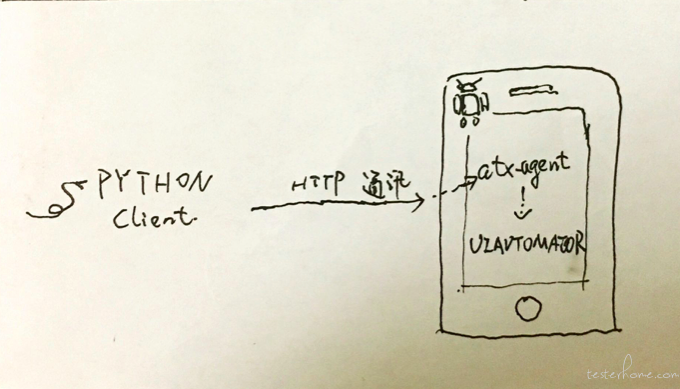 PYTHON
Client.
HTTP 通讯
atx-agent
UIAUTOMATOR
testerhome.com